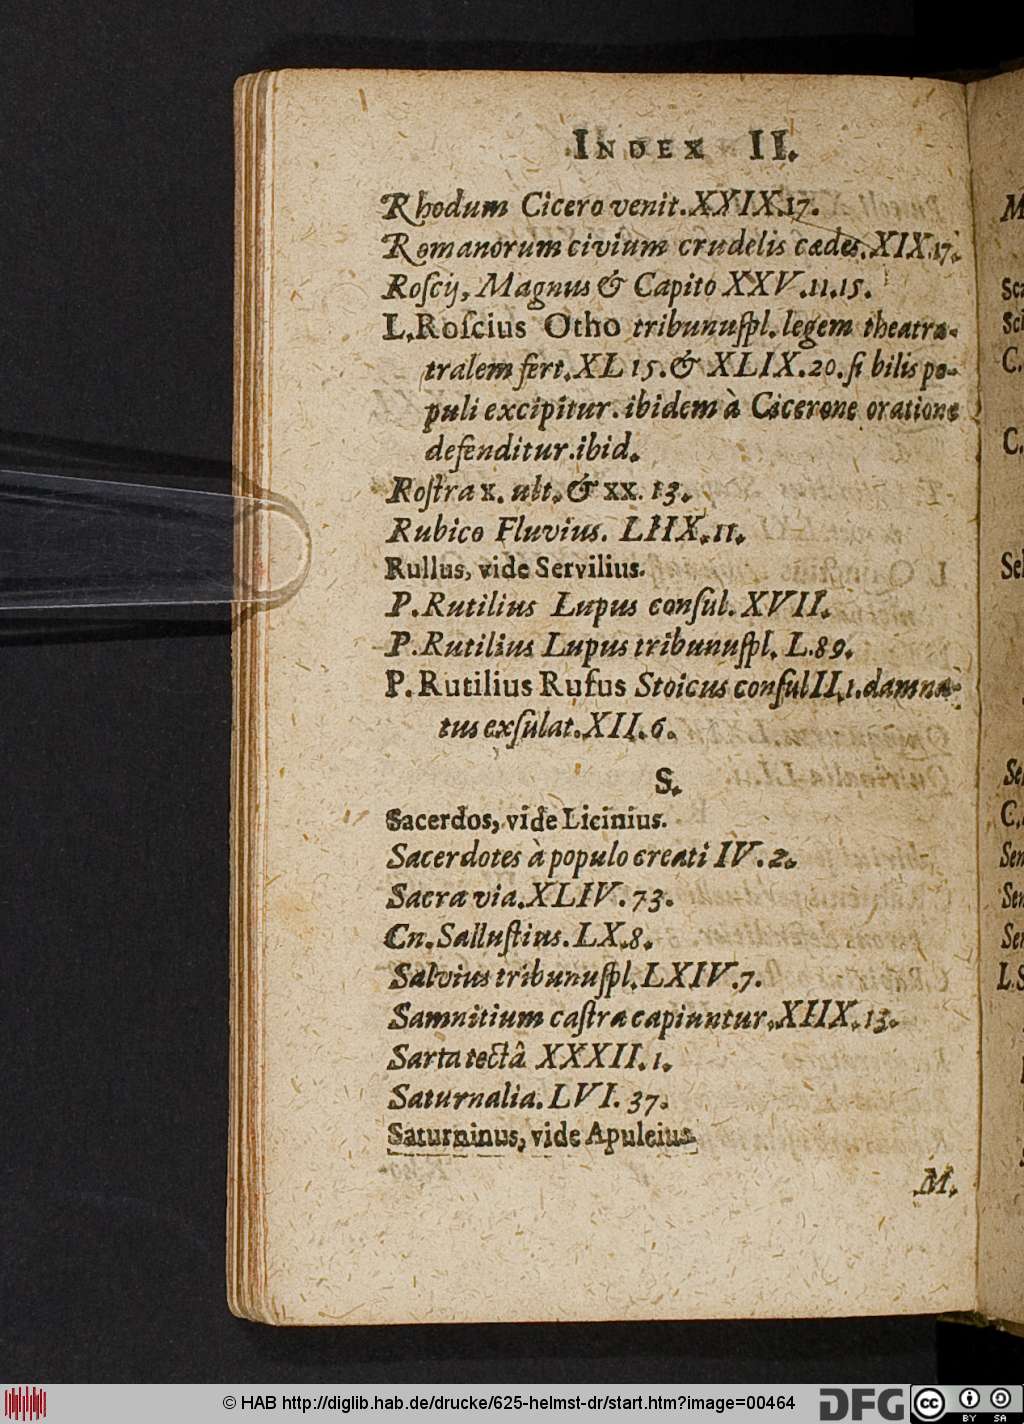 INDEX II.
Rhodum Cicero venit. XXIX.17.
Romanorum civium crudelis cædes. XIX.17.
Roſcij, Magnus & Capito XXV.11.15.
L. Roſcius Otho tribunuſpl. legem theatra-
tralem fert. XL 15. & XLIX. 20. ſi bilis po-
puli excipitur. ibidem à Cicerone oratione
defenditur. ibid.
Roſtra x. ult. & xx. 13.
Rubico Fluvius. LIIX. 11.
Rullus, vide Servilius.
P. Rutilius Lupus conſul. XVII.
P. Rutilius Lupus tribunuſpl. L. 89.
P. Rutilius Rufus Stoicus conſul II, 1. damna-
tus exſulat. XII. 6.
S.
Sacerdos, vide Licinius.
Sacerdotes à populo creati IV. 2.
Sacra via. XLIV. 73.
Cn. Salluſtius. LX. 8.
Salvius tribunuſpl. LXIV. 7.
Samnitium caſtra capiuntur. XIIX. 13.
Sarta tectâ XXXII. 1.
Saturnalia. LVI. 37.
Saturninus, vide Apuleius.
M.
M
Sca
Sc
C.
C.
Sel
Se
C.
Sen
Sen
Sen
L. S
© HAB http://diglib.hab.de/drucke/625-helmst-dr/start.htm?image=00464
DFG
cc
BY SA